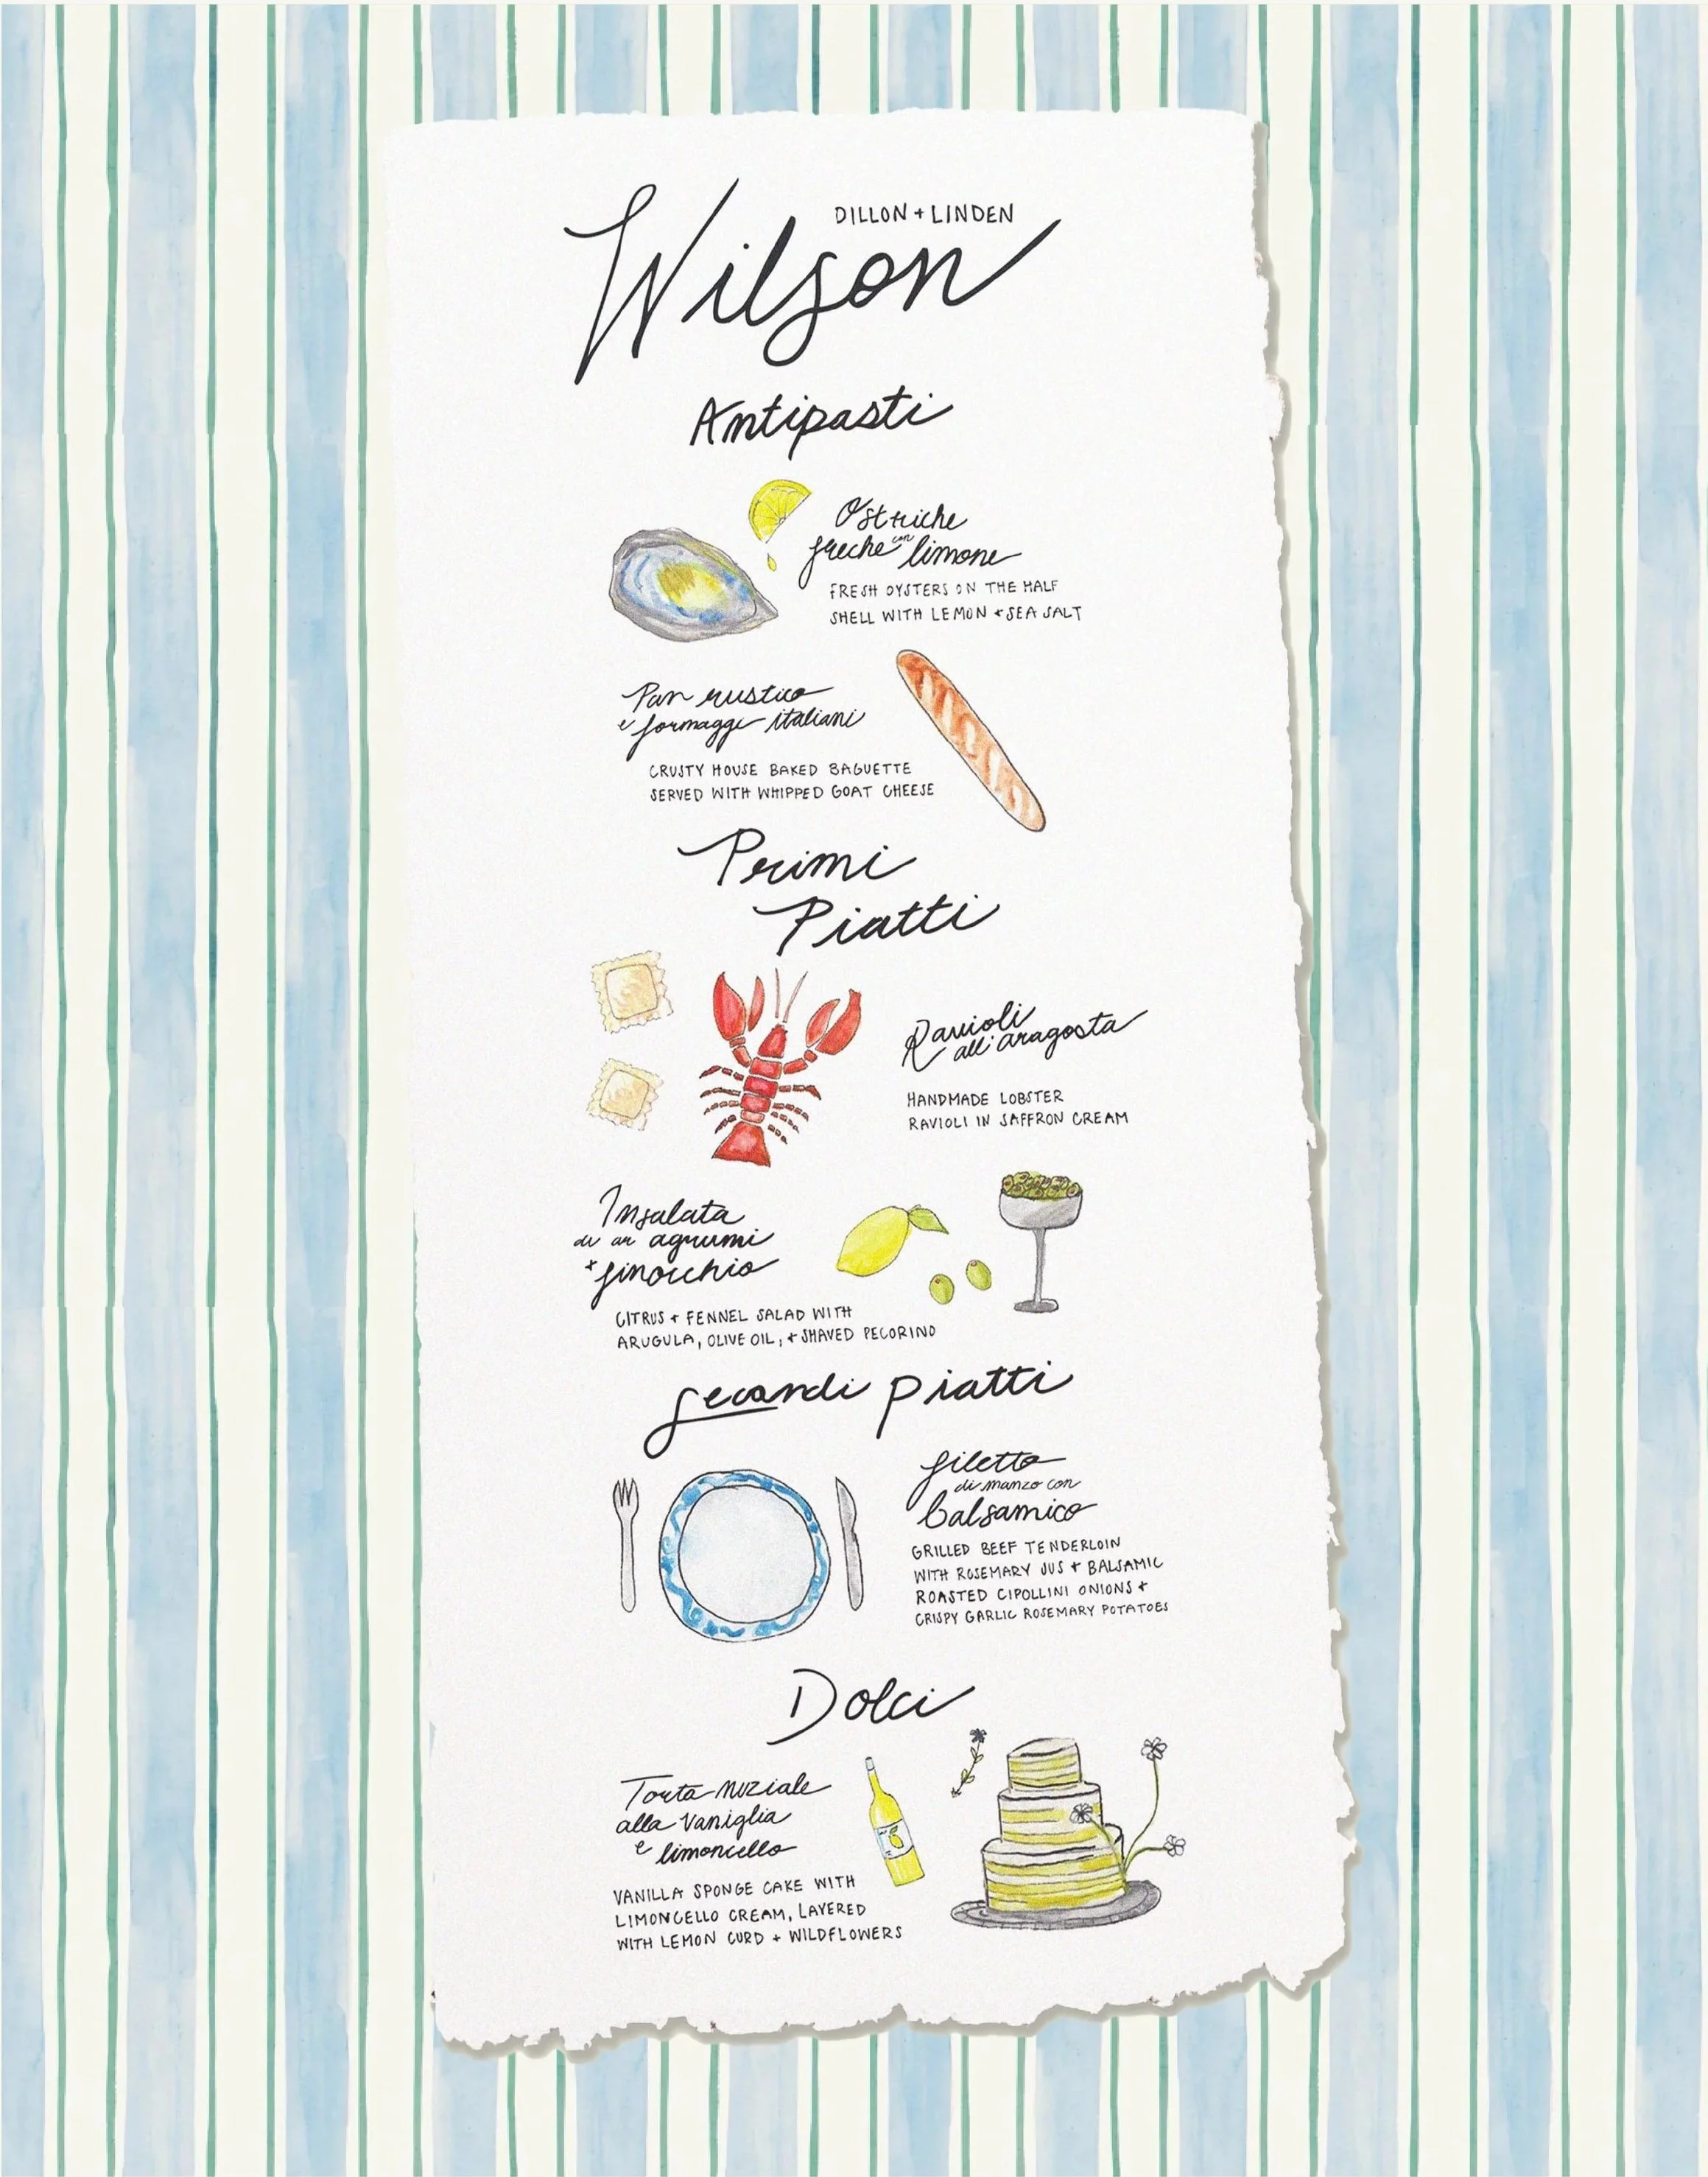 DILLON + LINDEN
Wilson
Antipasti
Ostriche
freche con limone
FRESH OYSTERS ON THE HALF
SHELL WITH LEMON + SEA SALT
Pan rustico
e formaggi italiani
CRUSTY HOUSE BAKED BAGUETTE
SERVED WITH WHIPPED GOAT CHEESE
Primi
Piatti
Ravioli
all'aragosta
HANDMADE LOBSTER
RAVIOLI IN SAFFRON CREAM
Insalata
di an agrumi
+ finocchio
CITRUS + FENNEL SALAD WITH
ARUGULA, OLIVE OIL, + SHAVED PECORINO
Secondi piatti
filetto
di manzo con
balsamico
GRILLED BEEF TENDERLOIN
WITH ROSEMARY JUS + BALSAMIC
ROASTED CIPOLLINI ONIONS +
CRISPY GARLIC ROSEMARY POTATOES
Dolci
Torta nuziale
alla vaniglia
e limoncello
VANILLA SPONGE CAKE WITH
LIMONCELLO CREAM, LAYERED
WITH LEMON CURD + WILDFLOWERS